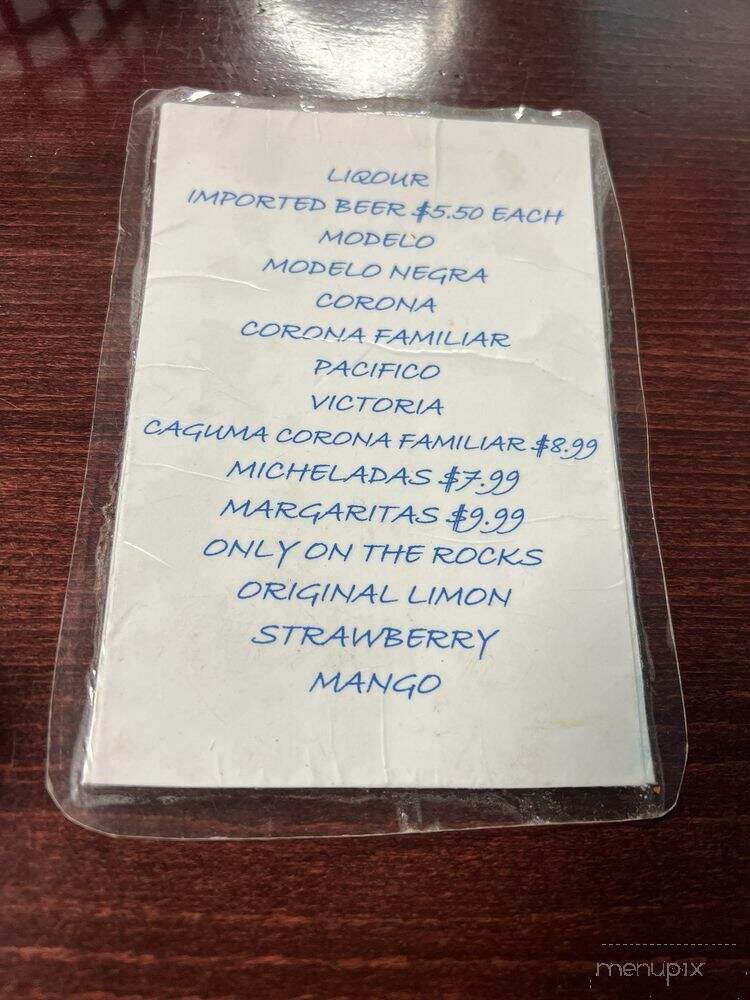 LIQOUR
IMPORTED BEER $5.50 EACH
MODELO
MODELO NEGRA
CORONA
CORONA FAMILIAR
PACIFICO
VICTORIA
CAGUMA CORONA FAMILIAR $8.99
MICHELADAS $7.99
MARGARITAS $9.99
ONLY ON THE ROCKS
ORIGINAL LIMON
STRAWBERRY
MANGO
menupix